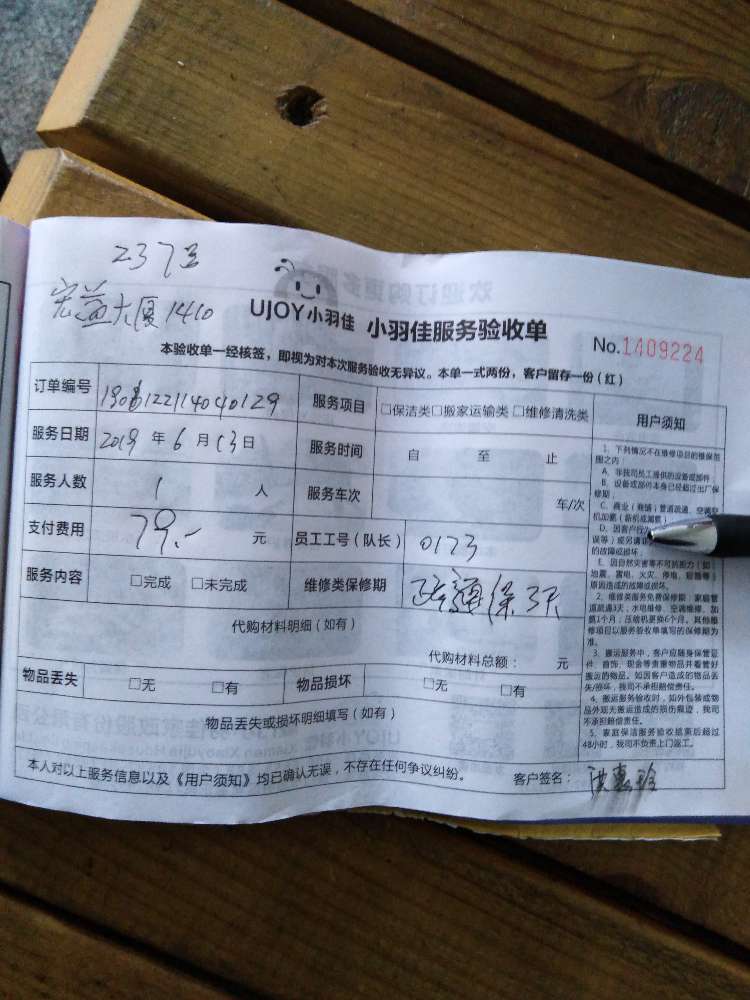 237号
宏益大厦1410
UJOY小羽佳 小羽佳服务验收单
No.1409224
本验收单一经核签，即视为对本次服务验收无异议。本单一式两份，客户留存一份（红）
订单编号 服务项目 □保洁类□搬家运输类□维修清洗类 用户须知
服务日期 2019 年 6 月 13 日 服务时间 自 至 止
服务人数 1 人 服务车次 车/次
支付费用 79.- 元 员工工号（队长） 0173
服务内容 □完成 □未完成 维修类保修期 保3天
代购材料明细（如有）
代购材料总额： 元
物品丢失 □无 □有 物品损坏 □无 □有
物品丢失或损坏明细填写（如有）
本人对以上服务信息以及《用户须知》均已确认无误，不存在任何争议纠纷。 客户签名： 洪惠玲
1、下列情况不在维修项目的维保范
围之内：
A、非我司员工提供的设备或部件；
B、设备或部件本身已经超过出厂保
修期；
C、商业（商铺）管道疏通、空调
机加氟（新机或漏氟）
D、因客户行为
误等）或另请
的故障或损坏；
E、因自然灾害等不可抗拒力（如
地震、雷电、火灾、停电、短路等）
原因造成的故障或损坏。
2、维修类服务免费保修期：家庭管
道疏通3天；水电维修、空调维修、加
氟1个月；压缩机更换6个月。其他维
修项目以服务验收单填写的保修期为
准。
3、搬运服务中，客户应随身保管证
件、首饰、现金等贵重物品并看管好
搬运的物品。如因客户造成的物品丢
失/损坏，我司不承担赔偿责任。
4、搬运服务验收时，如外包装或物
品外观无搬运造成的损伤痕迹，我司
不承担赔偿责任。
5、家庭保洁服务验收结束后超过
48小时，我司不负责上门返工。